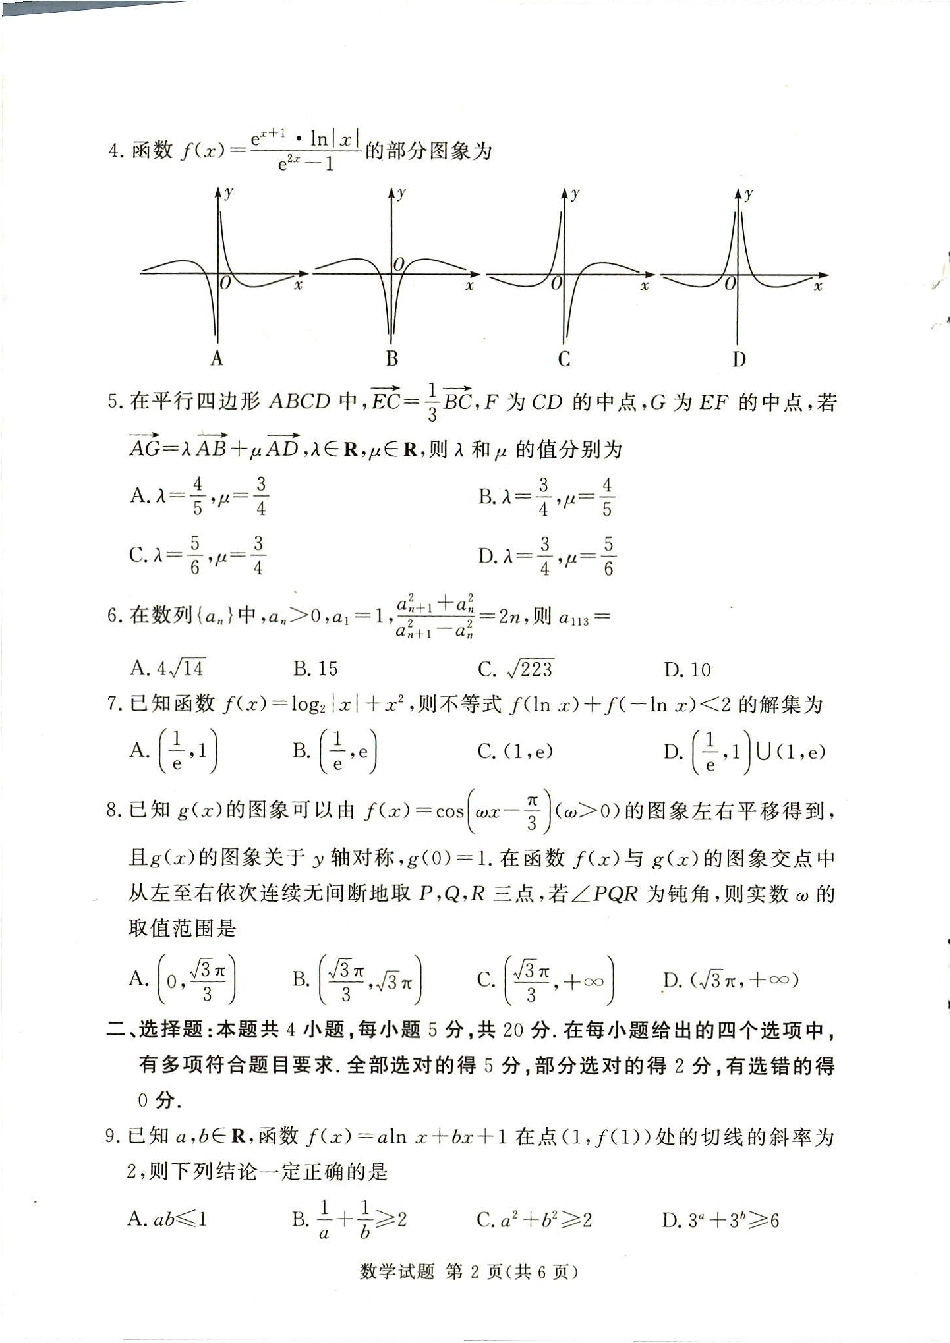 4. 函数 f(x)=\frac{e^{x+1}·ln|x|}{e^{2x}-1}的部分图象为
y y y y
O x O x O x O x
A B C D
5. 在平行四边形 ABCD 中,\overrightarrow{EC}=\frac{1}{3}\overrightarrow{BC},F 为 CD 的中点,G 为 EF 的中点,若
\overrightarrow{AG}=λ\overrightarrow{AB}+μ\overrightarrow{AD},λ∈R,μ∈R,则 λ 和 μ 的值分别为
A. λ=\frac{4}{5},μ=\frac{3}{4} B. λ=\frac{3}{4},μ=\frac{4}{5}
C. λ=\frac{5}{6},μ=\frac{3}{4} D. λ=\frac{3}{4},μ=\frac{5}{6}
6. 在数列{a_n}中,a_n>0,a_1=1,\frac{a_{n+1}^2+a_n^2}{a_{n+1}^2-a_n^2}=2n,则 a_{113}=
A. 4\sqrt{14} B. 15 C. \sqrt{223} D. 10
7. 已知函数 f(x)=log_2|x|+x^2,则不等式 f(ln x)+f(-ln x)<2 的解集为
A. (\frac{1}{e},1) B. (\frac{1}{e},e) C. (1,e) D. (\frac{1}{e},1)∪(1,e)
8. 已知 g(x)的图象可以由 f(x)=cos(ωx-\frac{π}{3})(ω>0)的图象左右平移得到,
且g(x)的图象关于 y 轴对称,g(0)=1. 在函数 f(x)与 g(x)的图象交点中
从左至右依次连续无间断地取 P,Q,R 三点,若∠PQR 为钝角,则实数 ω 的
取值范围是
A. (0,\frac{\sqrt{3}π}{3}) B. (\frac{\sqrt{3}π}{3},\sqrt{3}π) C. (\frac{\sqrt{3}π}{3},+∞) D. (\sqrt{3}π,+∞)
二、选择题:本题共 4 小题,每小题 5 分,共 20 分. 在每小题给出的四个选项中,
有多项符合题目要求. 全部选对的得 5 分,部分选对的得 2 分,有选错的得
0 分.
9. 已知 a,b∈R,函数 f(x)=aln x+bx+1 在点(1,f(1))处的切线的斜率为
2,则下列结论一定正确的是
A. ab≤1 B. \frac{1}{a}+\frac{1}{b}≥2 C. a^2+b^2≥2 D. 3^a+3^b≥6
数学试题 第 2 页(共 6 页)